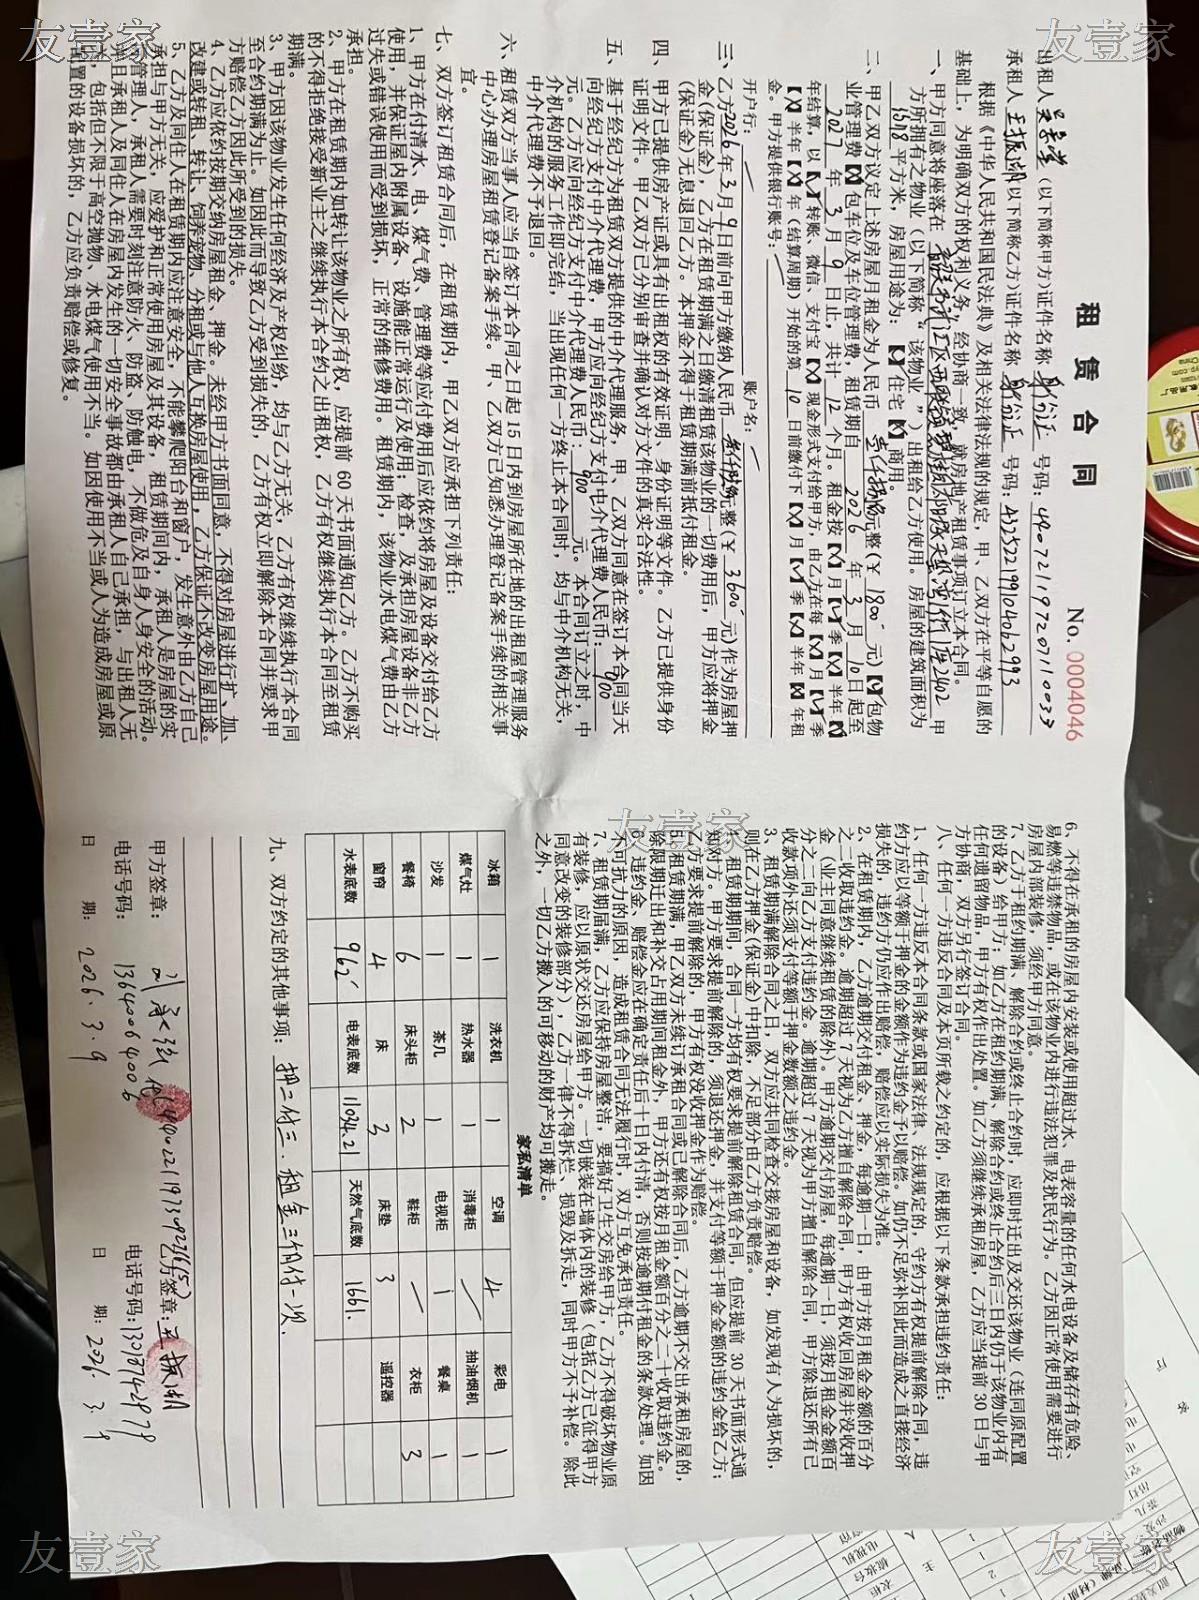 租赁合同
No. 0004046
出租人 (以下简称甲方)证件名称 身份证 号码:
承租人 王振湖(以下简称乙方)证件名称 身份证 号码:
根据《中华人民共和国民法典》及相关法律法规的规定,甲、乙双方在平等自愿的
基础上,为明确双方的权利义务,经协商一致,就房地产租赁事项订立本合同。
一、甲方同意将座落在 2402 甲
方所拥有之物业(以下简称“该物业”)出租给乙方使用。房屋的建筑面积为
平方米,房屋用途为:【√】住宅【×】商用。
二、甲乙双方议定上述房屋月租金为人民币 壹仟捌佰元整(¥ 1800 元)【√】包物
业管理费【×】包车位及车位管理费,租赁期自 2026 年 3 月 10 日起至
2027 年 3 月 9 日止,共计 12 个月。租金按【×】月【√】季【×】半年【×】
年结算,以【√】转账、微信、支付宝【×】现金形式支付给甲方,由乙方在每【×】月【√】季
【×】半年【×】年(结算周期)开始的第 10 日前缴付下【×】月【√】季【×】半年【×】年租
金。甲方提供银行账号:
开户行: 账户名:
三、乙方2026年3月9日前向甲方缴纳人民币 叁仟陆佰元整(¥ 3600 元)作为房屋押
金(保证金),乙方在租赁期满之日缴清租赁该物业的一切费用后,甲方应将押金
(保证金)无息退回乙方。本押金不得于租赁期满前抵付租金。
四、甲方已提供房产证或具有出租权的有效证明、身份证明等文件。乙方已提供身份
证明文件。甲乙双方已分别审查并确认对方文件的真实合法性。
五、基于经纪方为租赁双方提供的中介代理服务,甲、乙双方同意在签订本合同当天
向经纪方支付中介代理费,甲方应向经纪方支付中介代理费人民币: 900
元。乙方应向经纪方支付中介代理费人民币: 900 元。本合同订立之时,中
介机构的服务工作即完结,当出现任何一方终止本合同时,均与中介机构无关,
中介代理费不予退回。
六、租赁双方当事人应当自签订本合同之日起 15 日内到房屋所在地的出租屋管理服务
中心办理房屋租赁登记备案手续。甲、乙双方已知悉办理登记备案手续的相关事
宜。
七、双方签订租赁合同后,在租赁期内,甲乙双方应承担下列责任:
1、甲方在付清水、电、煤气费、管理费等应付费用后应依约将房屋及设备交付给乙方
使用,并保证屋内附属设备、设施能正常运行及使用;检查,及承担房屋设备非乙方
过失或错误使用而受到损坏,正常的维修费用。租赁期内,该物业水电煤气费由乙方
承担。
2、甲方在租赁期内如转让该物业之所有权,应提前 60 天书面通知乙方。乙方不购买
的不得拒绝接受新业主之继续执行本合约之出租权,乙方有权继续执行本合同至租赁
期满。
3、甲方因该物业发生任何经济及产权纠纷,均与乙方无关,乙方有权继续执行本合同
至合约期满为止。如因此而导致乙方受到损失的,乙方有权立即解除本合同并要求甲
方赔偿乙方因此所受到的损失。
4、乙方应依约按期交纳房屋租金、押金。未经甲方书面同意,不得对房屋进行扩、加、
改建或转租、转让、饲养宠物、分租或与他人互换房屋使用,乙方保证不改变房屋用途。
5、乙方及同住人在租赁期内应注意安全,不能攀爬阳台和窗户,发生意外由乙方自己
承担与甲方无关,应爱护和正常使用房屋及其设备,租赁期间内,承租人是房屋的实
际管理人,承租人需要时刻注意防火、防盗、防触电,不做危及自身人身安全的活动。
并且承租人及同住人在房屋内发生的一切安全事故都由承租人自己承担,与出租人无
关,包括但不限于高空抛物、水电煤气使用不当。如因使用不当或人为造成房屋或原
配置的设备损坏的,乙方应负责赔偿或修复。
6、不得在承租的房屋内安装或使用超过水、电表容量的任何水电设备及储存有危险、
易燃等违禁物品,或在该物业内进行违法犯罪及扰民行为。乙方因正常使用需要进行
房屋内部装修,须经甲方同意。
7、乙方于租约期满、解除合约或终止合约时,应即时迁出及交还该物业(连同原配置
的设备)给甲方;如乙方在租约期满、解除合约或终止合约后三日内仍于该物业内有
任何遗留物品,甲方有权作出处置。如乙方须继续承租房屋,乙方应当提前 30 日与甲
方协商,双方另行签订合同。
八、任何一方违反合同及本页所载之约定的,应根据以下条款承担违约责任:
1、任何一方违反本合同条款或国家法律、法规规定的,守约方有权提前解除合同,违
约方应以等额于押金的金额作为违约金予以赔偿。如仍不足弥补因此而造成之直接经济
损失的,违约方仍应作出赔偿,赔偿应以实际损失为准。
2、在租赁期内,乙方逾期交付租金、押金,每逾期一日,由甲方按月租金金额的百分
之二收取违约金。逾期超过 7 天视为乙方擅自解除合同,甲方有权收回房屋并没收押
金(业主同意继续租赁的除外)。甲方逾期交付房屋,每逾期一日,须按月租金金额百
分之二向乙方支付违约金。逾期超过 7 天视为甲方擅自解除合同,甲方除退还所有已
收款项外还须支付等额于押金数额之违约金。
3、租赁期满解除合同之日,双方应共同检查交接房屋和设备,如发现有人为损坏的,
则在乙方押金(保证金)中扣除,不足部分由乙方负责赔偿。
4、租赁期期间,合同一方均有权要求提前解除租赁合同,但应提前 30 天书面形式通
知对方。甲方要求提前解除的,须退还押金,并支付等额于押金金额的违约金给乙方;
乙方要求提前解除的,甲方有权没收押金作为赔偿。
5、租赁期满,甲乙双方未续订承租合同或已解除合同后,乙方逾期不交出承租房屋的,
除限期迁出和补交占用期间租金外,甲方还有权按月租金额百分之二十收取违约金。
6、违约金、赔偿金应在确定责任后十日内付清,否则按逾期付租金的条款处理。如因
不可抗力的原因,造成租赁合同无法履行时,双方互免承担责任。
7、租赁期届满,乙方应保持房屋整洁,要搞好卫生交房给甲方,乙方不得破坏物业原
有装修,应以原状交还房屋给甲方。一切嵌装在墙体内的装修(包括乙方已征得甲方
同意改变的装修部分),乙方一律不得拆烂、损毁及拆走,同时甲方不予补偿。除此
之外,一切乙方搬入的可移动的财产均可搬走。
家私清单
冰箱 1 洗衣机 1 空调 4 彩电 1
煤气灶 1 热水器 1 消毒柜 抽油烟机 1
沙发 1 茶几 1 电视柜 1 餐桌 1
餐椅 6 床头柜 2 鞋柜 衣柜 3
窗帘 4 床 3 床垫 3 遥控器
水表底数 962 电表底数 11094.21 天然气底数 1661.
九、双方约定的其他事项: 押二付三.租金三个月付一次.
甲方签章: 乙方签章:王振湖
电话号码: 13640064006 电话号码:
日 期: 2026.3.9 日 期: 2026.3.9
友壹家
友壹家
友壹家
友壹家
友壹家